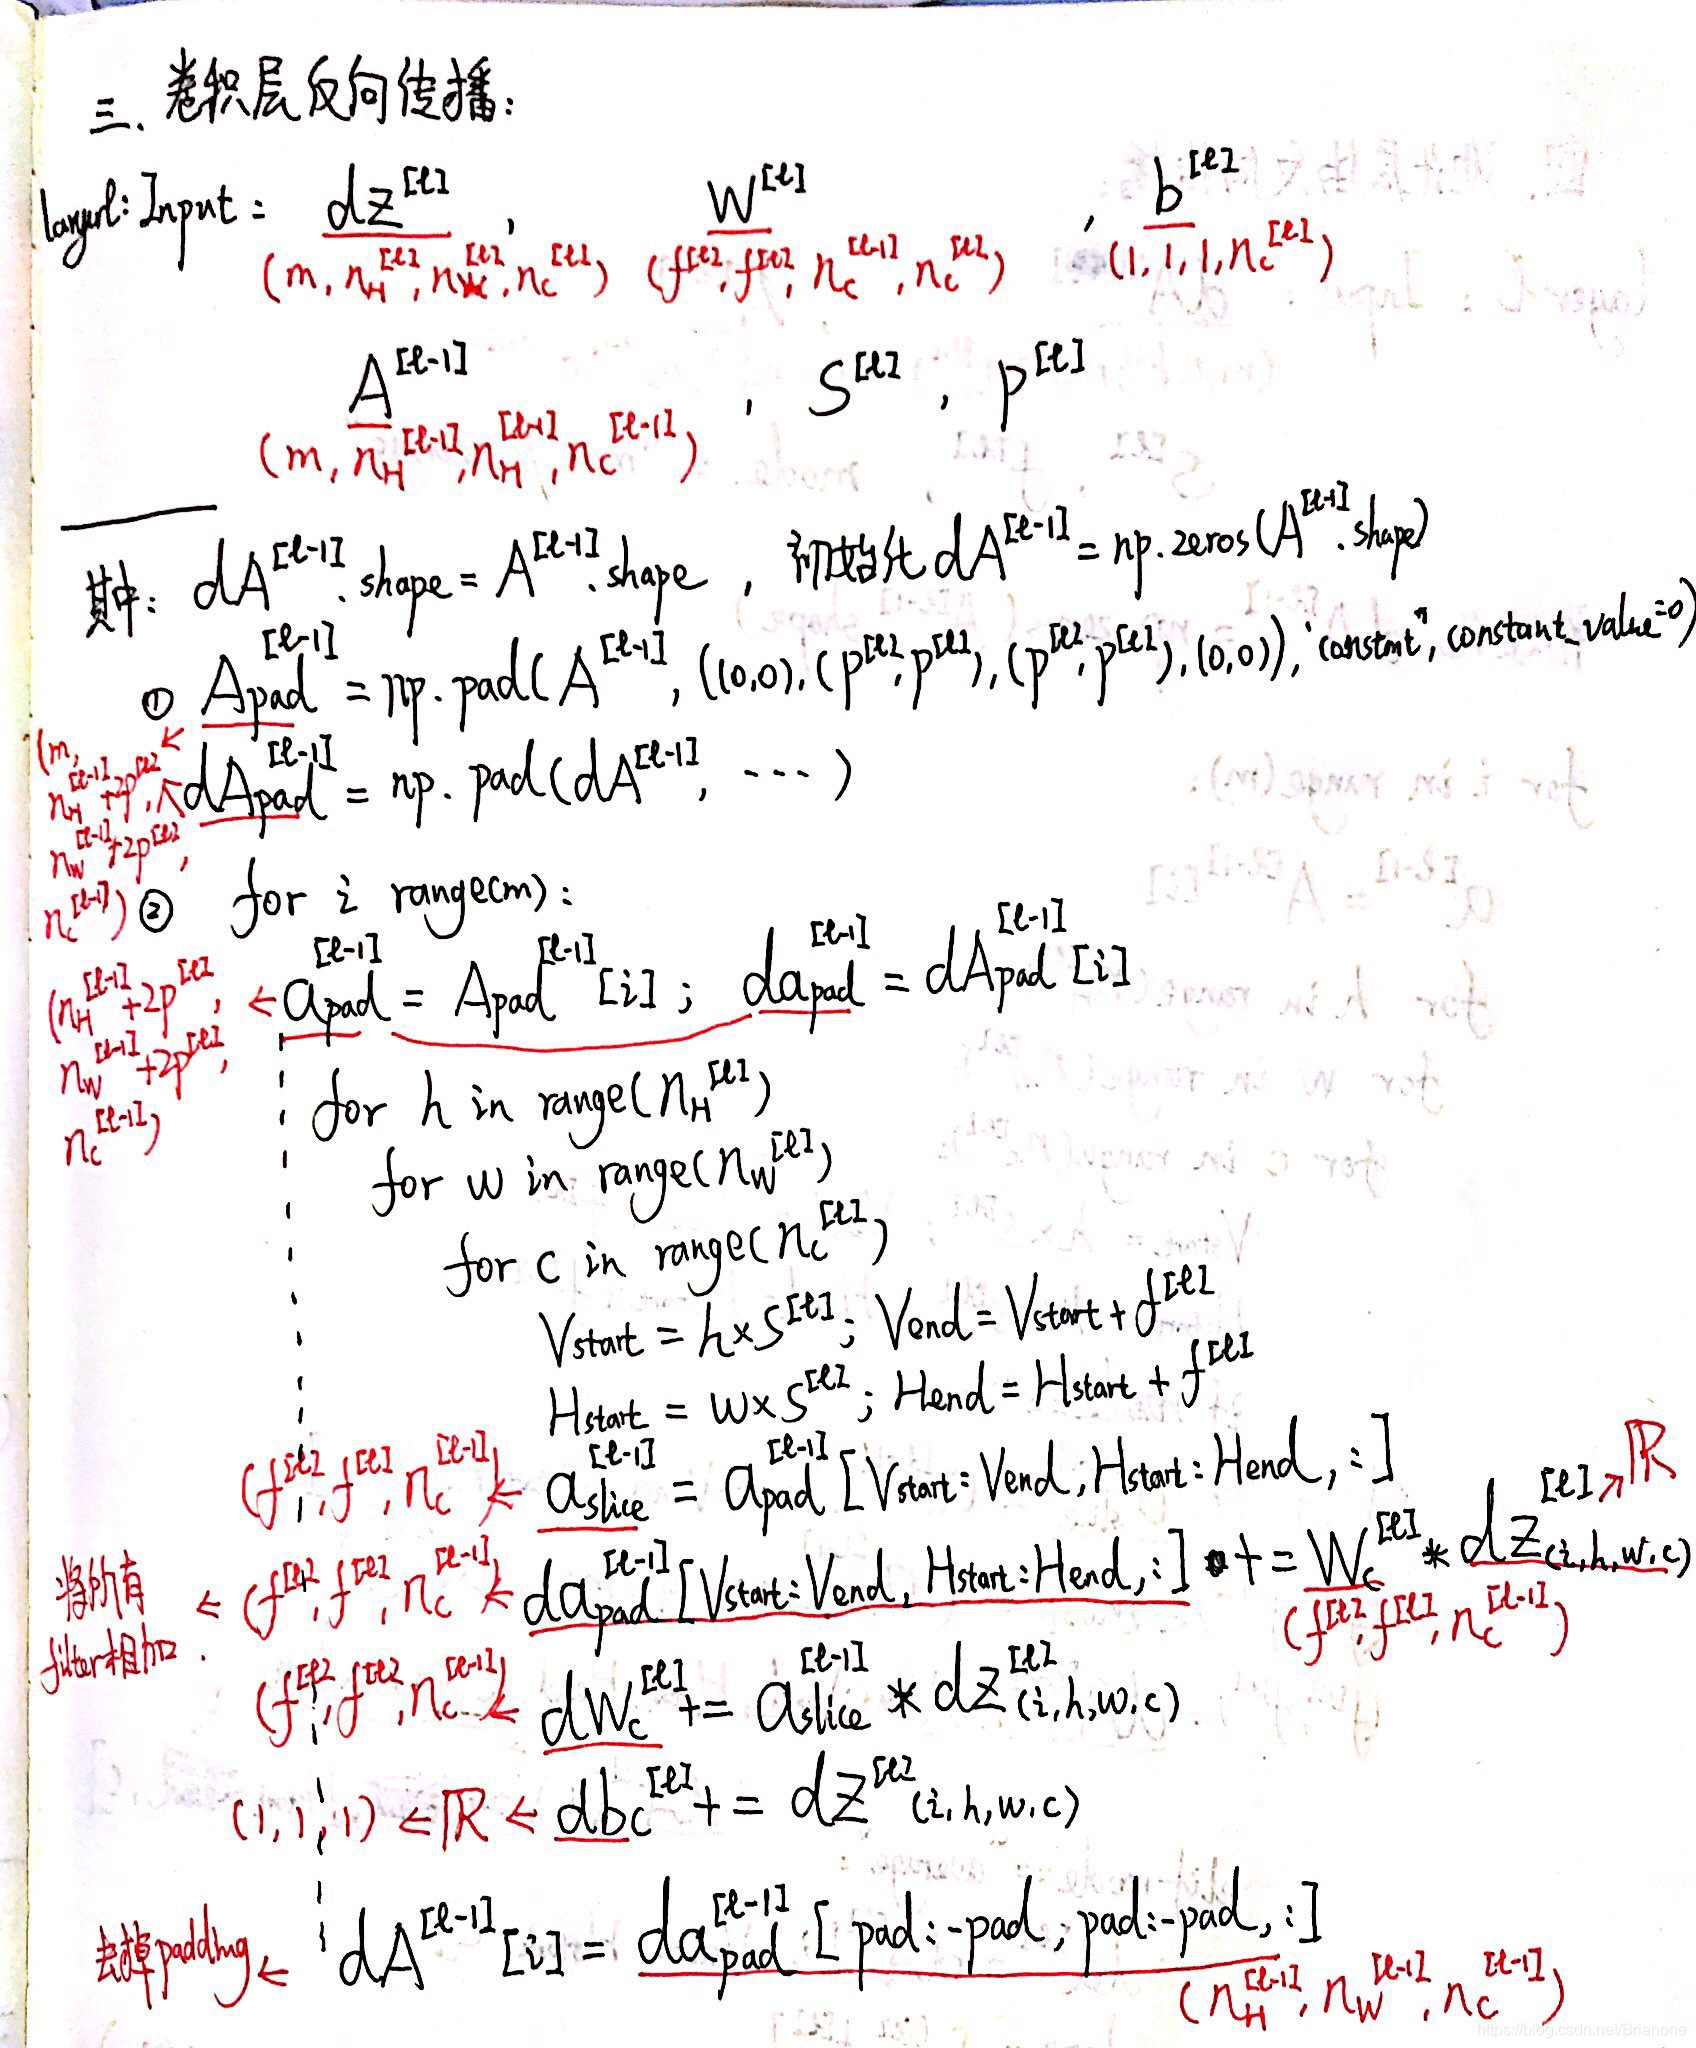 三、卷积层反向传播:
layerl: Input: dZ^[l], W^[l], b^[l]
(m, n_H^[l], n_W^[l], n_C^[l]) (f^[l], f^[l], n_C^[l-1], n_C^[l]) (1, 1, 1, n_C^[l])
A^[l-1], S^[l], p^[l]
(m, n_H^[l-1], n_H^[l-1], n_C^[l-1])
其中: dA^[l-1].shape = A^[l-1].shape, 初始化 dA^[l-1] = np.zeros(A^[l-1].shape)
① Apad^[l-1] = np.pad(A^[l-1], ((0,0), (p^[l], p^[l]), (p^[l], p^[l]), (0,0)), "constant", constant_value=0)
dApad^[l-1] = np.pad(dA^[l-1], ···)
(m,
n_H^[l-1]+2p^[l],
n_W^[l-1]+2p^[l],
n_C^[l-1])
② for i range(m):
apad^[l-1] = Apad^[l-1][i]; dapad^[l-1] = dApad^[l-1][i]
(n_H^[l-1]+2p^[l],
n_W^[l-1]+2p^[l],
n_C^[l-1])
for h in range(n_H^[l])
for w in range(n_W^[l])
for c in range(n_C^[l])
Vstart = h×S^[l]; Vend = Vstart + f^[l]
Hstart = w×S^[l]; Hend = Hstart + f^[l]
(f^[l], f^[l], n_C^[l-1]) ← aslice^[l-1] = apad^[l-1][Vstart:Vend, Hstart:Hend, :]
将所有filter相加. ← (f^[l], f^[l], n_C^[l-1]) ← dapad^[l-1][Vstart:Vend, Hstart:Hend, :] += Wc^[l] * dZ^[l](i,h,w,c) → ℝ
(f^[l], f^[l], n_C^[l-1])
(f^[l], f^[l], n_C^[l-1]) ← dWc^[l] += aslice^[l-1] * dZ^[l](i,h,w,c)
(1,1,1) ← ℝ ← dbc^[l] += dZ^[l](i,h,w,c)
去掉padding ← dA^[l-1][i] = dapad^[l-1][pad:-pad, pad:-pad, :]
(n_H^[l-1], n_W^[l-1], n_C^[l-1])
https://blog.csdn.net/Brianone